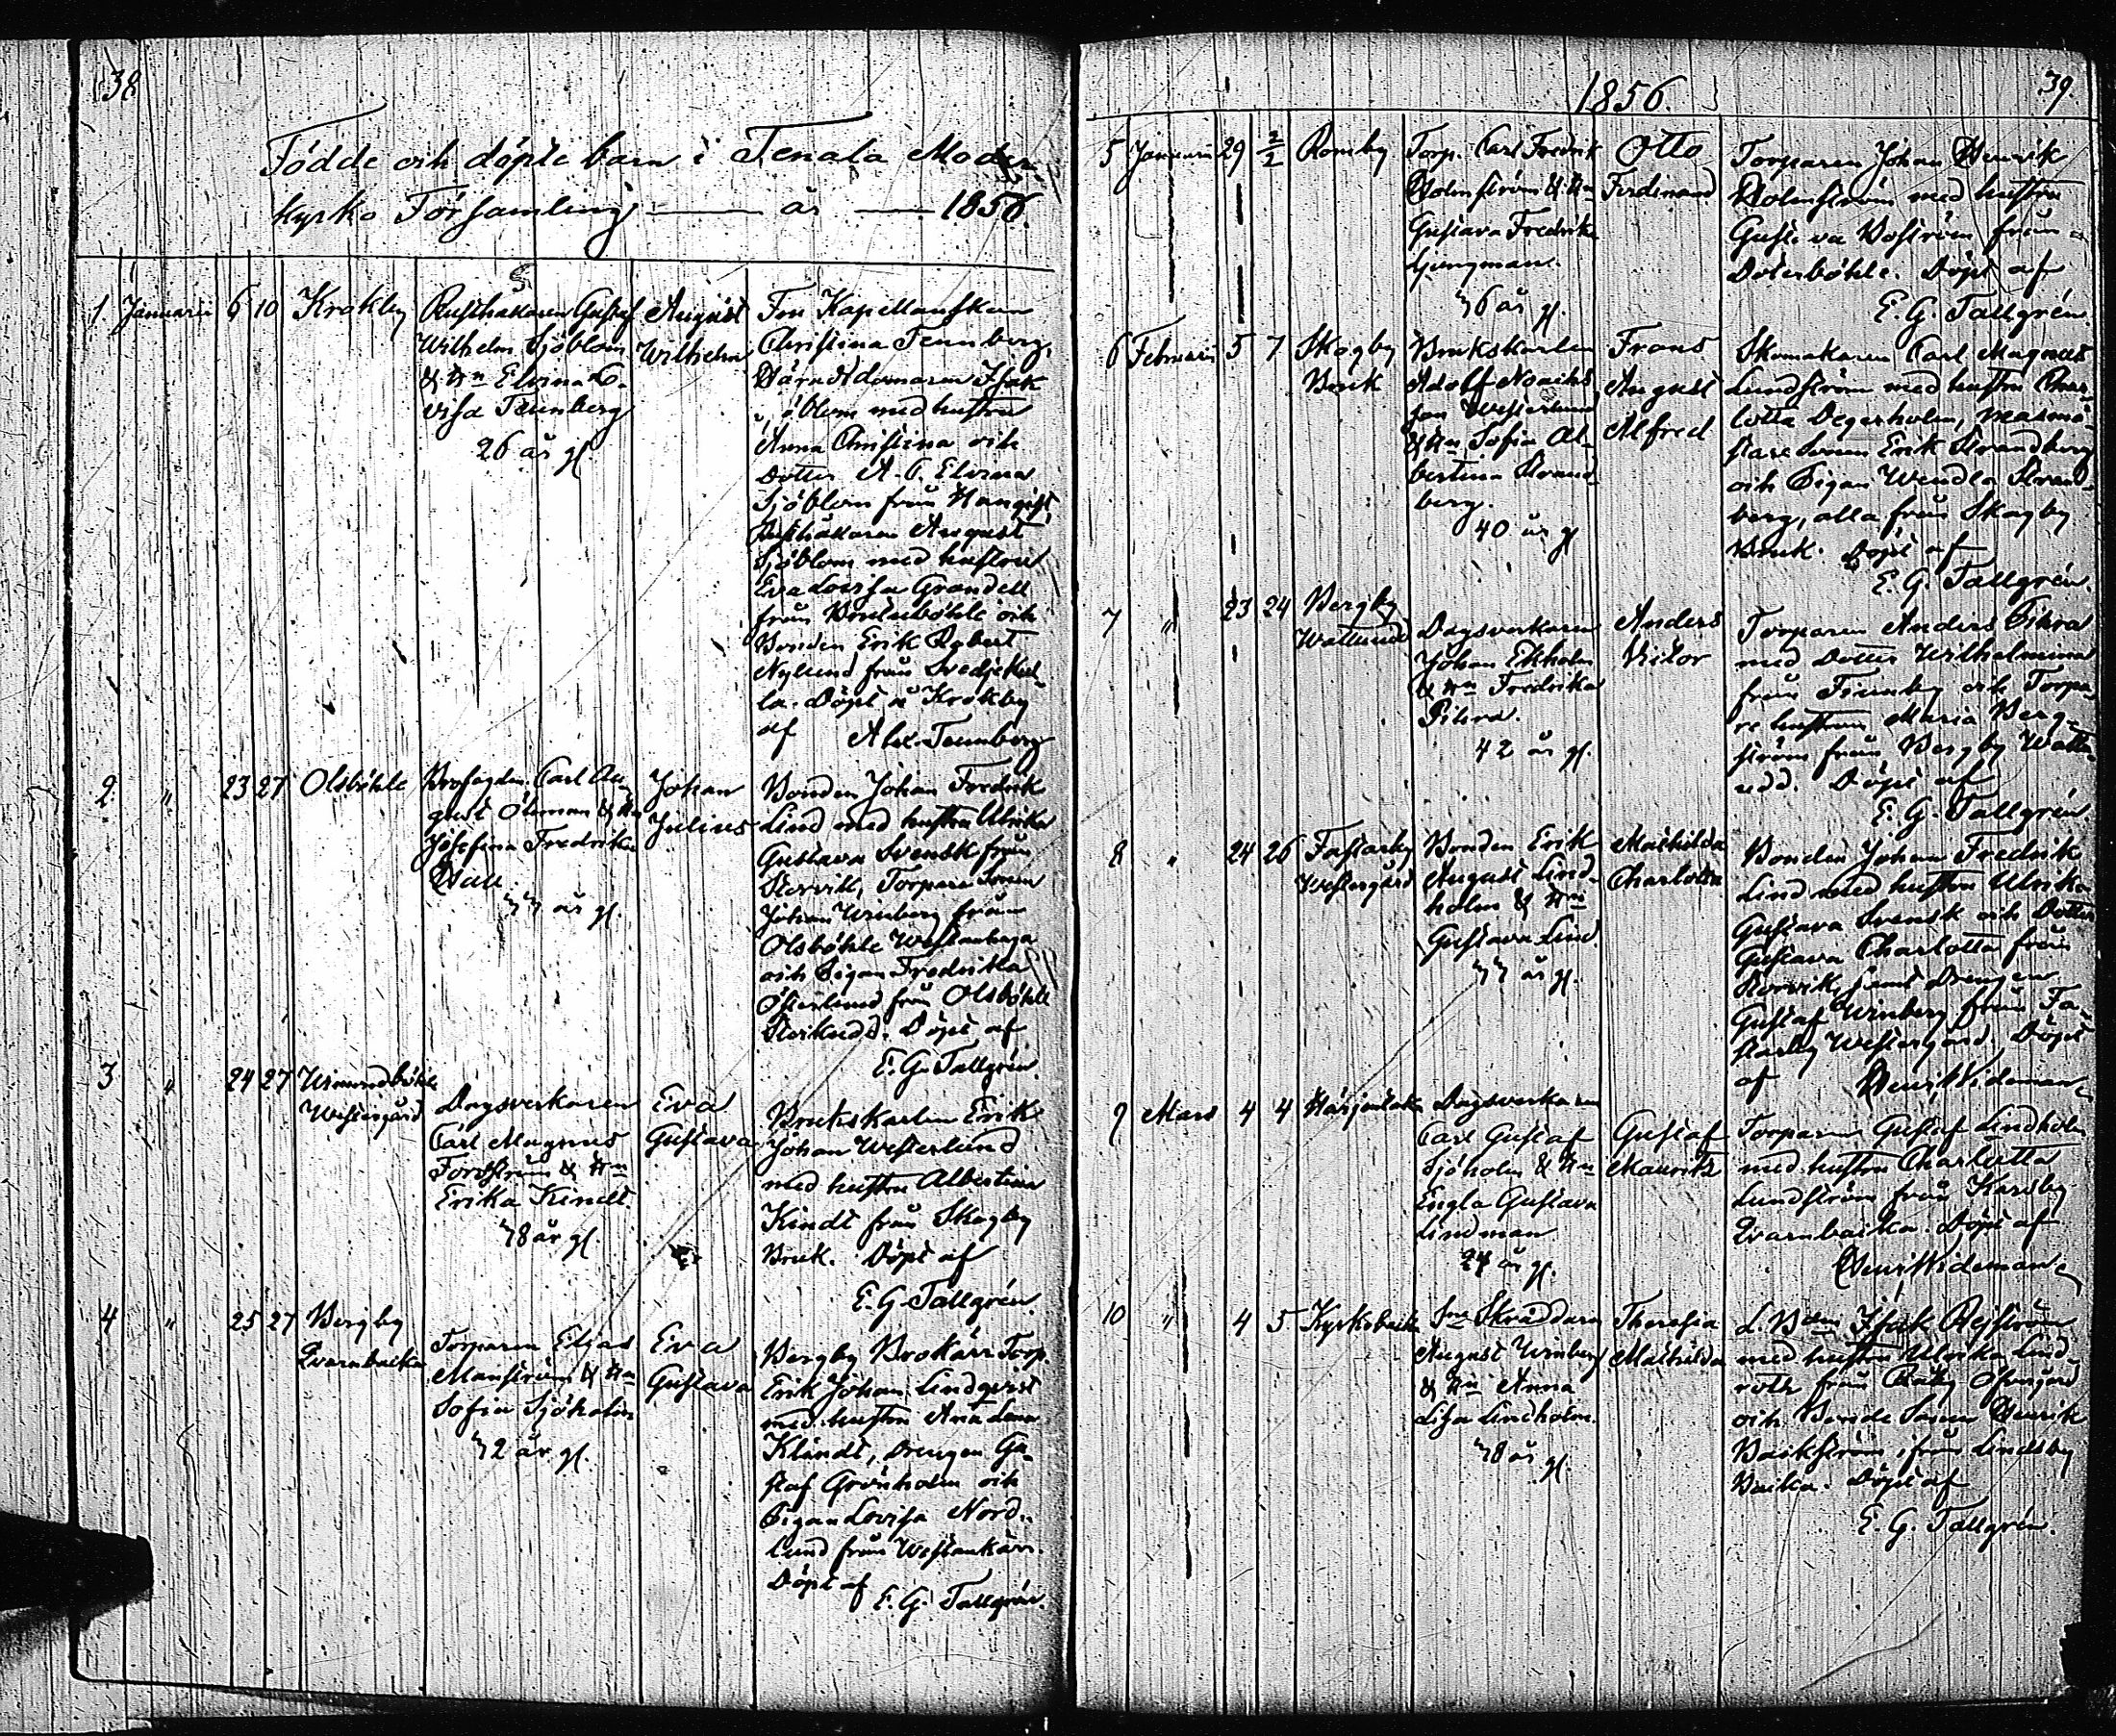 38
Födde och döpte barn i Tenala Moder
kyrko Församling år 1856.
1 Januarii 6 10 Krokby
Rusthållaren Gustaf
Wilhelm Sjöblom
& Hn Elvina Lo-
visa Tennberg
26 år gl.
August
Wilhelm
Fru Kapellanskan
Christina Tennberg,
Häradsdomaren Isak
Sjöblom med hustru
Anna Christina och
Dotter A. C. Elvira
Sjöblom från
Rusthållaren August
Sjöblom med hustru
Eva Lovisa Grandell
från och
Bonden Erik Robert
Nylund från Svedjekul-
la. Döpt i Krokby
af Alex. Tennberg
2. " 23 27 Olsböhle
Brofogden Carl Au-
gust Öhman & Hn
Josefina Fredrika
Hall
33 år gl.
Johan
Julius
Bonden Johan Fredrik
Lind med hustru Ulrika
Gustava Svensk från
Storvik, Torpare Sonen
Johan Winberg från
Olsböhle Westanhaga
och Pigan Fredrika
Österlund från Olsböhle
Storkudd. Döpt af
E. G. Tallgrén.
3 " 24 27
Westergård
Dagsverkaren
Carl Magnus
Forsström & Hn
Erika Kindt.
38 år gl.
Eva
Gustava
Brukskarlen Erik
Johan Westerlund
med hustru Albertina
Kindt från Skogby
Bruk. Döpt af
E. G. Tallgrén.
4 " 25 27 Bergby
Qvarnbacka
Torparen Elias
Manström & Hn
Sofia Sjöholm
32 år gl.
Eva
Gustava
Bergby Brokärr Torp.
Erik Johan Lindqvist
med hustru Anna Lena
Klindt, Drengen Gu-
staf Grönholm och
Pigan Lovisa Nord-
lund från Westankärr.
Döpt af E. G. Tallgrén.
1856. 39.
5 Januarii 29 2/2 Romby
Torp. Carl Fredrik
Holmström & Hn
Gustava Fredrika
Ljungman.
36 år gl.
Otto
Ferdinand
Torparen Johan Henrik
Holmström med hustru
Gustava Boström från
Dalerböhle. Döpt af
E. G. Tallgrén.
6 Februarii 5 7 Skogby
Bruk
Brukskarlen
Adolf Noachs
son Westerlund
& Hn Sofia Al-
bertina Strand-
berg.
40 år gl
Frans
August
Alfred
Skomakaren Carl Magnus
Lundström med hustru Char-
lotta Degerholm, Masmä-
stare Sonen Erik Strandberg
och Pigan Wendla Strand-
berg, alla från Skogby
Bruk. Döpt af
E. G. Tallgrén
7 " 23 24 Bergby
Wattuudd
Dagsverkaren
Johan Ekholm
& Hn Fredrika
Pihra.
42 år gl.
Anders
Victor
Torparen Anders Pihra
med Dotter Wilhelmina
från Finnby och Torpa-
re hustrun Maria Berg-
ström från Bergby Wattu-
udd. Döpt af
E. G. Tallgrén.
8 " 24 26 Fastarby
Westergård
Bonden Erik
August Lind-
holm & Hn
Gustava Lind.
33 år gl.
Mathilda
Charlotta
Bonden Johan Fredrik
Lind med hustru Ulrika
Gustava Svensk och Dotter
Gustava Charlotta från
Storvik, samt Drengen
Gustaf Winberg från Fa-
starby Westergård. Döpt
af Henr. Wideman
9 Mars 4 4
Dagsverkaren
Carl Gustaf
Sjöholm & Hn
Engla Gustava
Lindman
24 år gl.
Gustaf
Mauritz
Torparen Gustaf Lindholm
med hustru Charlotta
Lundström från Karsby
Qvarnbacka. Döpt af
Henr. Wideman
10 " 4 5 Kyrkobacka
Sn Skräddaren
August Winberg
& Hn Anna
Lisa Lindholm.
38 år gl.
Theresia
Mathilda
L. Bdn Isak Rejström
med hustru Ulrika Lind-
roth från Öfvergård
och Bonde Sonen Henrik
Backström, från Lindsby
Backa. Döpt af
E. G. Tallgrén.